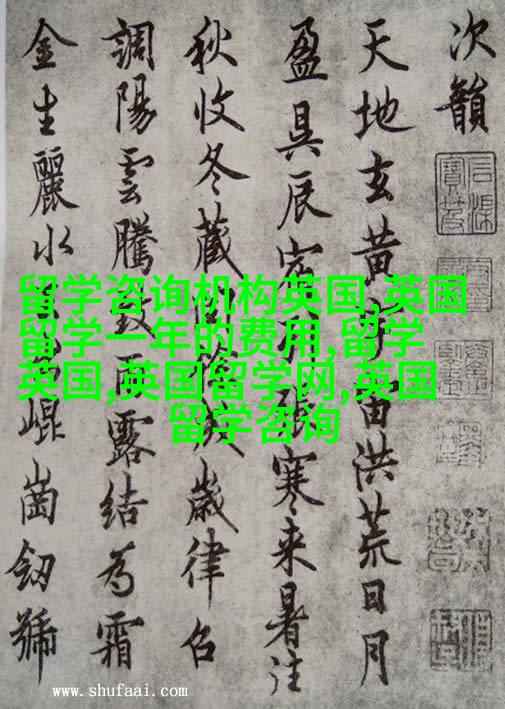 次韻
天地玄黃宇宙洪荒日月
盈昃辰宿列張寒来暑往
秋收冬藏閏餘成歲律召
調陽雲騰致雨露結為霜
金生麗水玉出崐崗劒號
留学咨询机构英国,英国
留学一年的费用,留学
英国,英国留学网,英国
留学咨询
www.shufaai.com